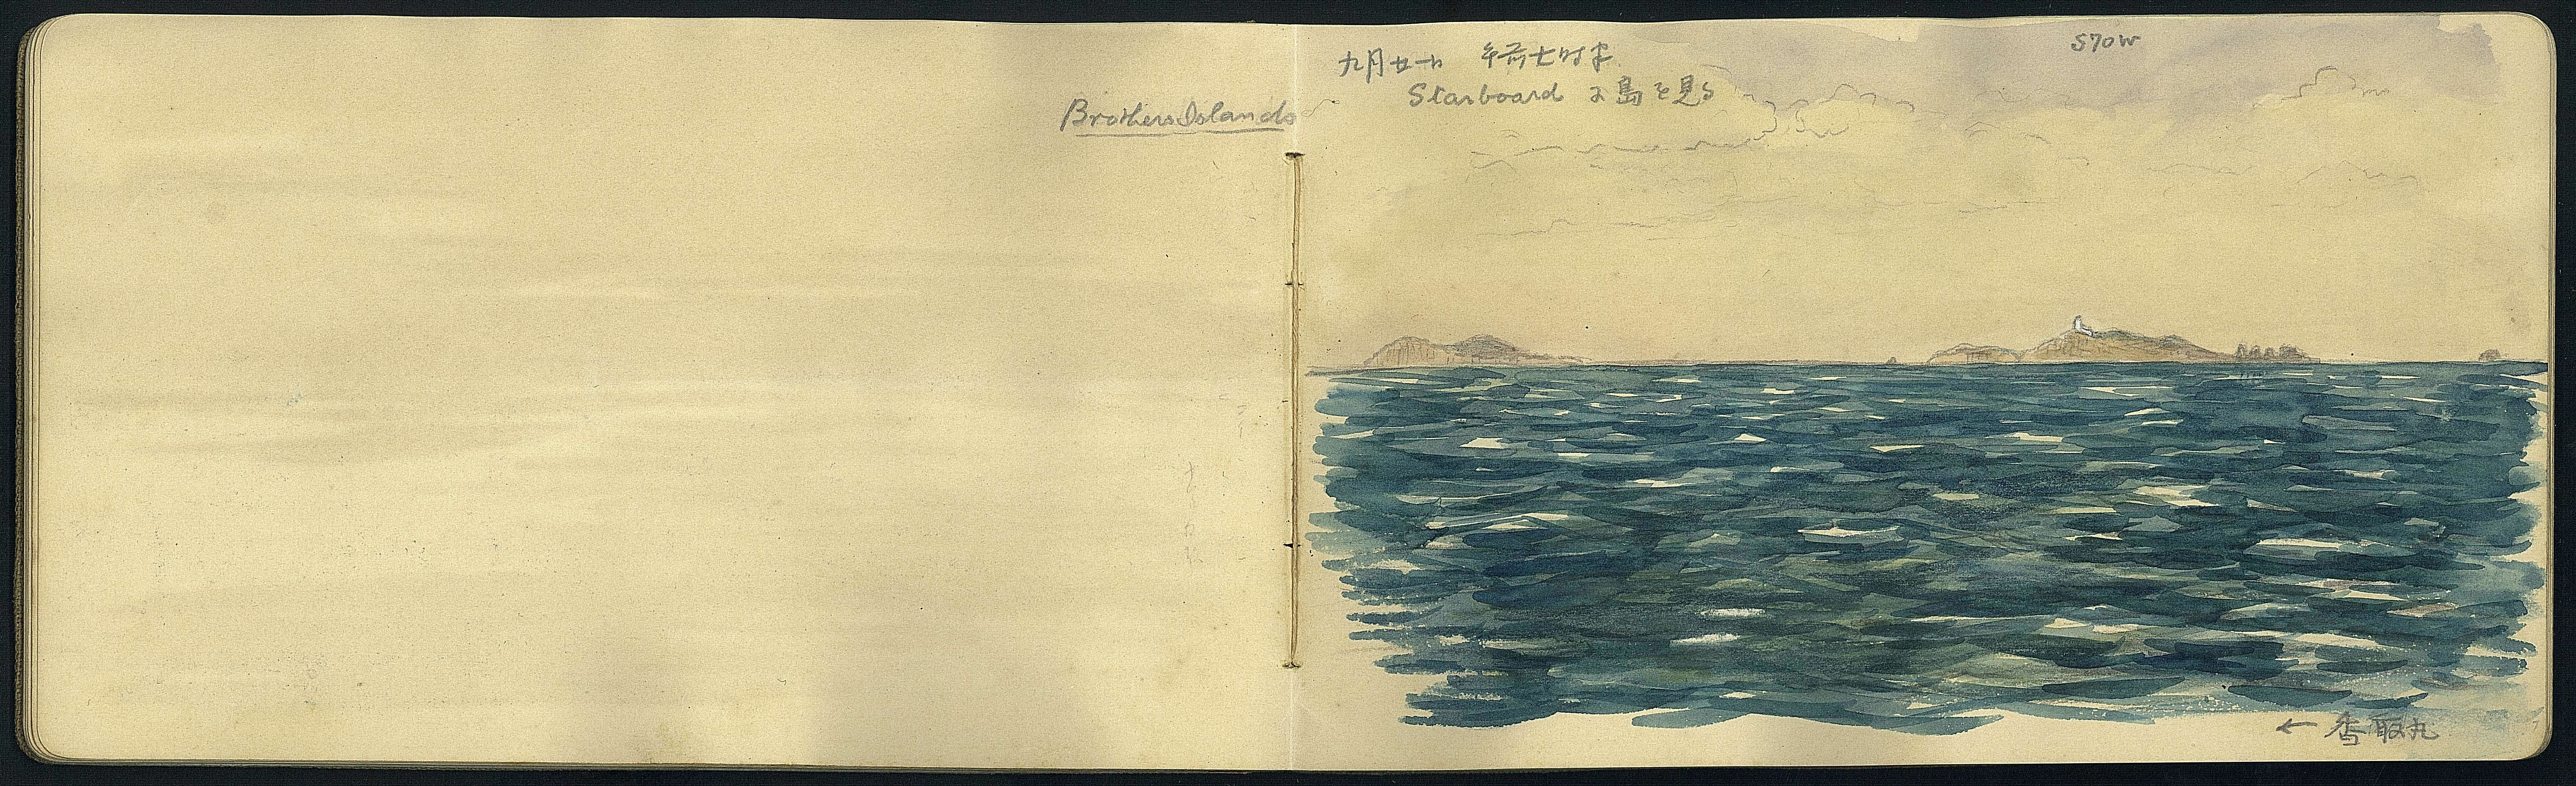 Brothers Islands
九月廿一日 午前七时半
Starboard ヱ島を見る
S70W
← 香取丸